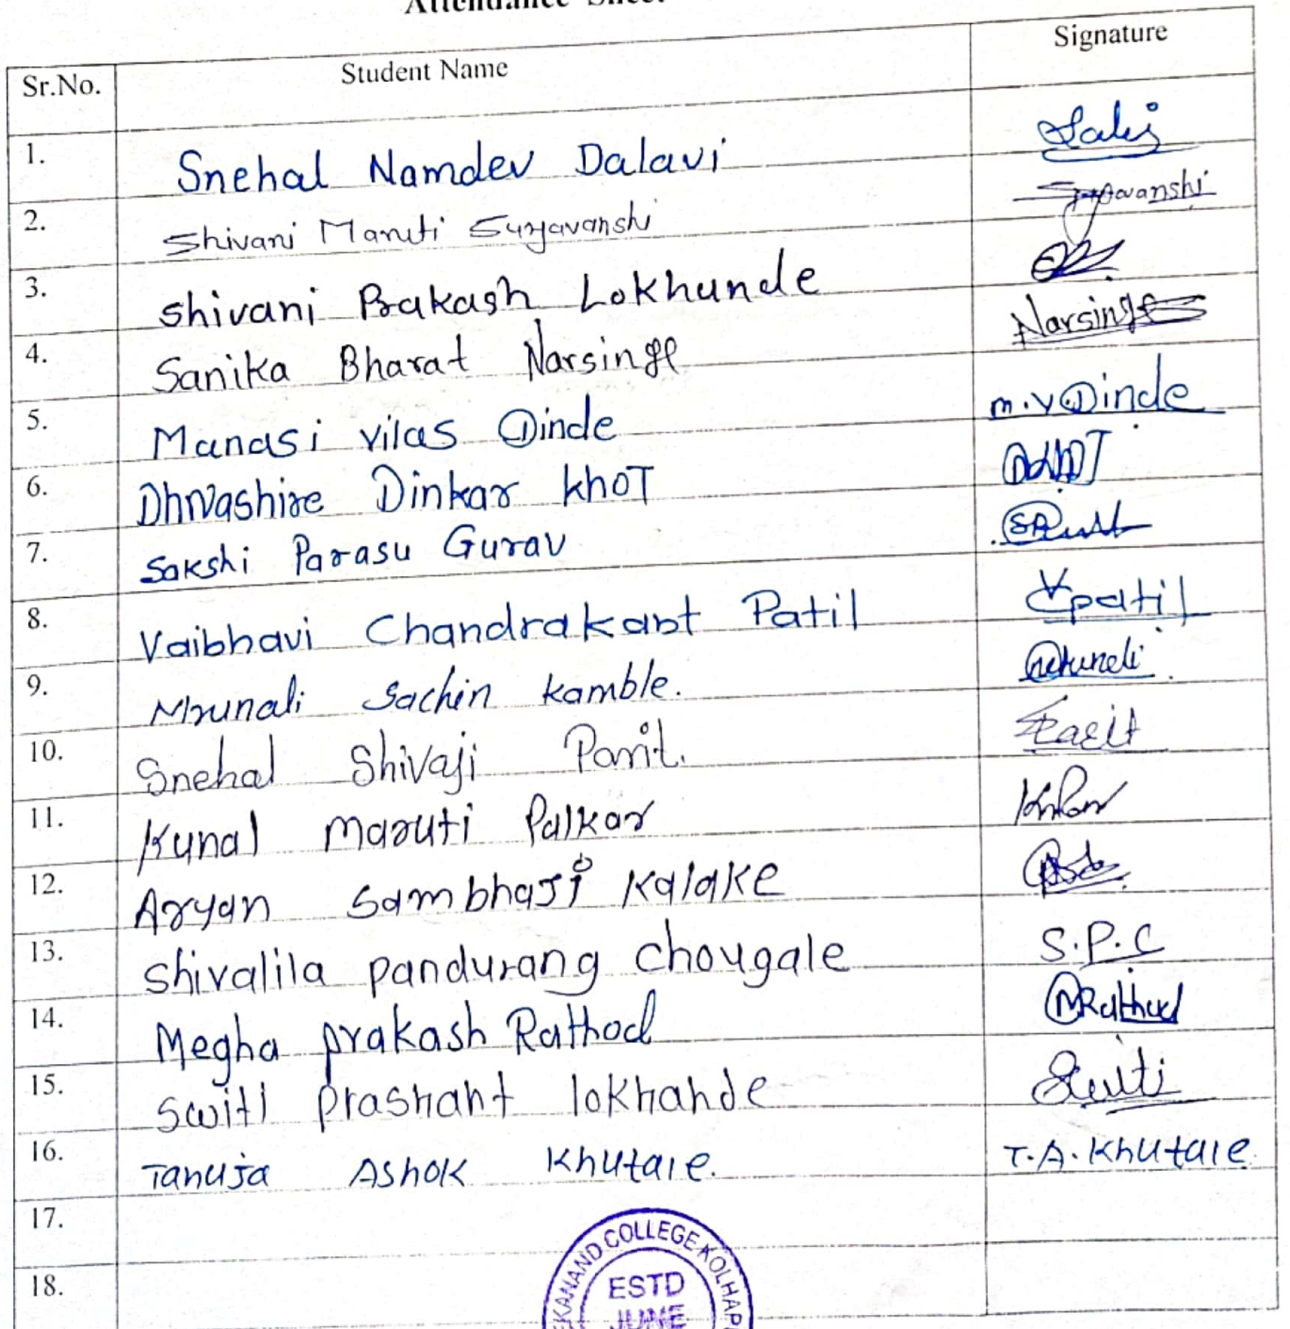 Attendance Sheet
Sr.No. Student Name Signature
1. Snehal Namdev Dalavi
2. Shivani Maruti Suryavanshi Suryavanshi
3. Shivani Prakash Lokhunde
4. Sanika Bharat Narsinge Narsinge
5. Manasi vilas Dinde m.v Dinde
6. Dinkar khoT
7. Sakshi Parasu Gurav
8. Vaibhavi Chandrakant Patil Vpatil
9. Mrunali Sachin kamble.
10. Snehal Shivaji Parit. Parit
11. Kunal Maruti Palkar
12. Aryan Sambhaji Kalake
13. Shivalila pandurang chougale S.P.C
14. Megha prakash Rathod MRathod
15. Switi Prashant lokhande Switi
16. Tanuja AShOK Khutale. T.A. Khutale.
17.
18.
EKANAND COLLEGE KOLHAP
ESTD
JUNE